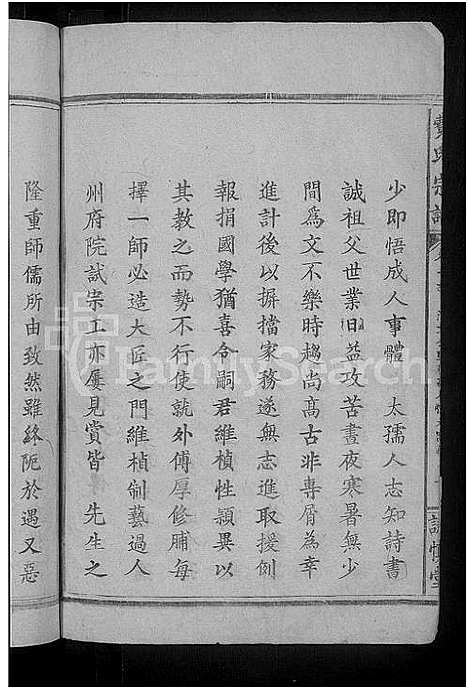 少即悟成人事體　太孺人志知詩書
誠祖父世業日益攻苦晝夜寒暑無少
間爲文不樂時趨尚高古非專屑爲幸
進計後以摒擋家務遂無志進取援例
報捐國學猶喜令嗣君維楨性頴異以
其教之而勢不行使就外傅厚修脯每
擇一師必造大匠之門維楨制藝過人
州府院試宗工亦屢見賞皆　先生之
隆重師儒所由致然雖終阨於遇又惡
FamilySearch